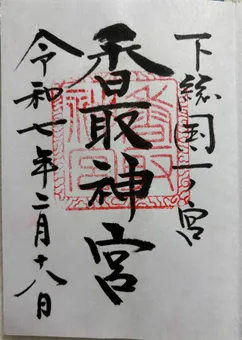 下総国一ノ宮
香取神宮
令和七年二月十八日